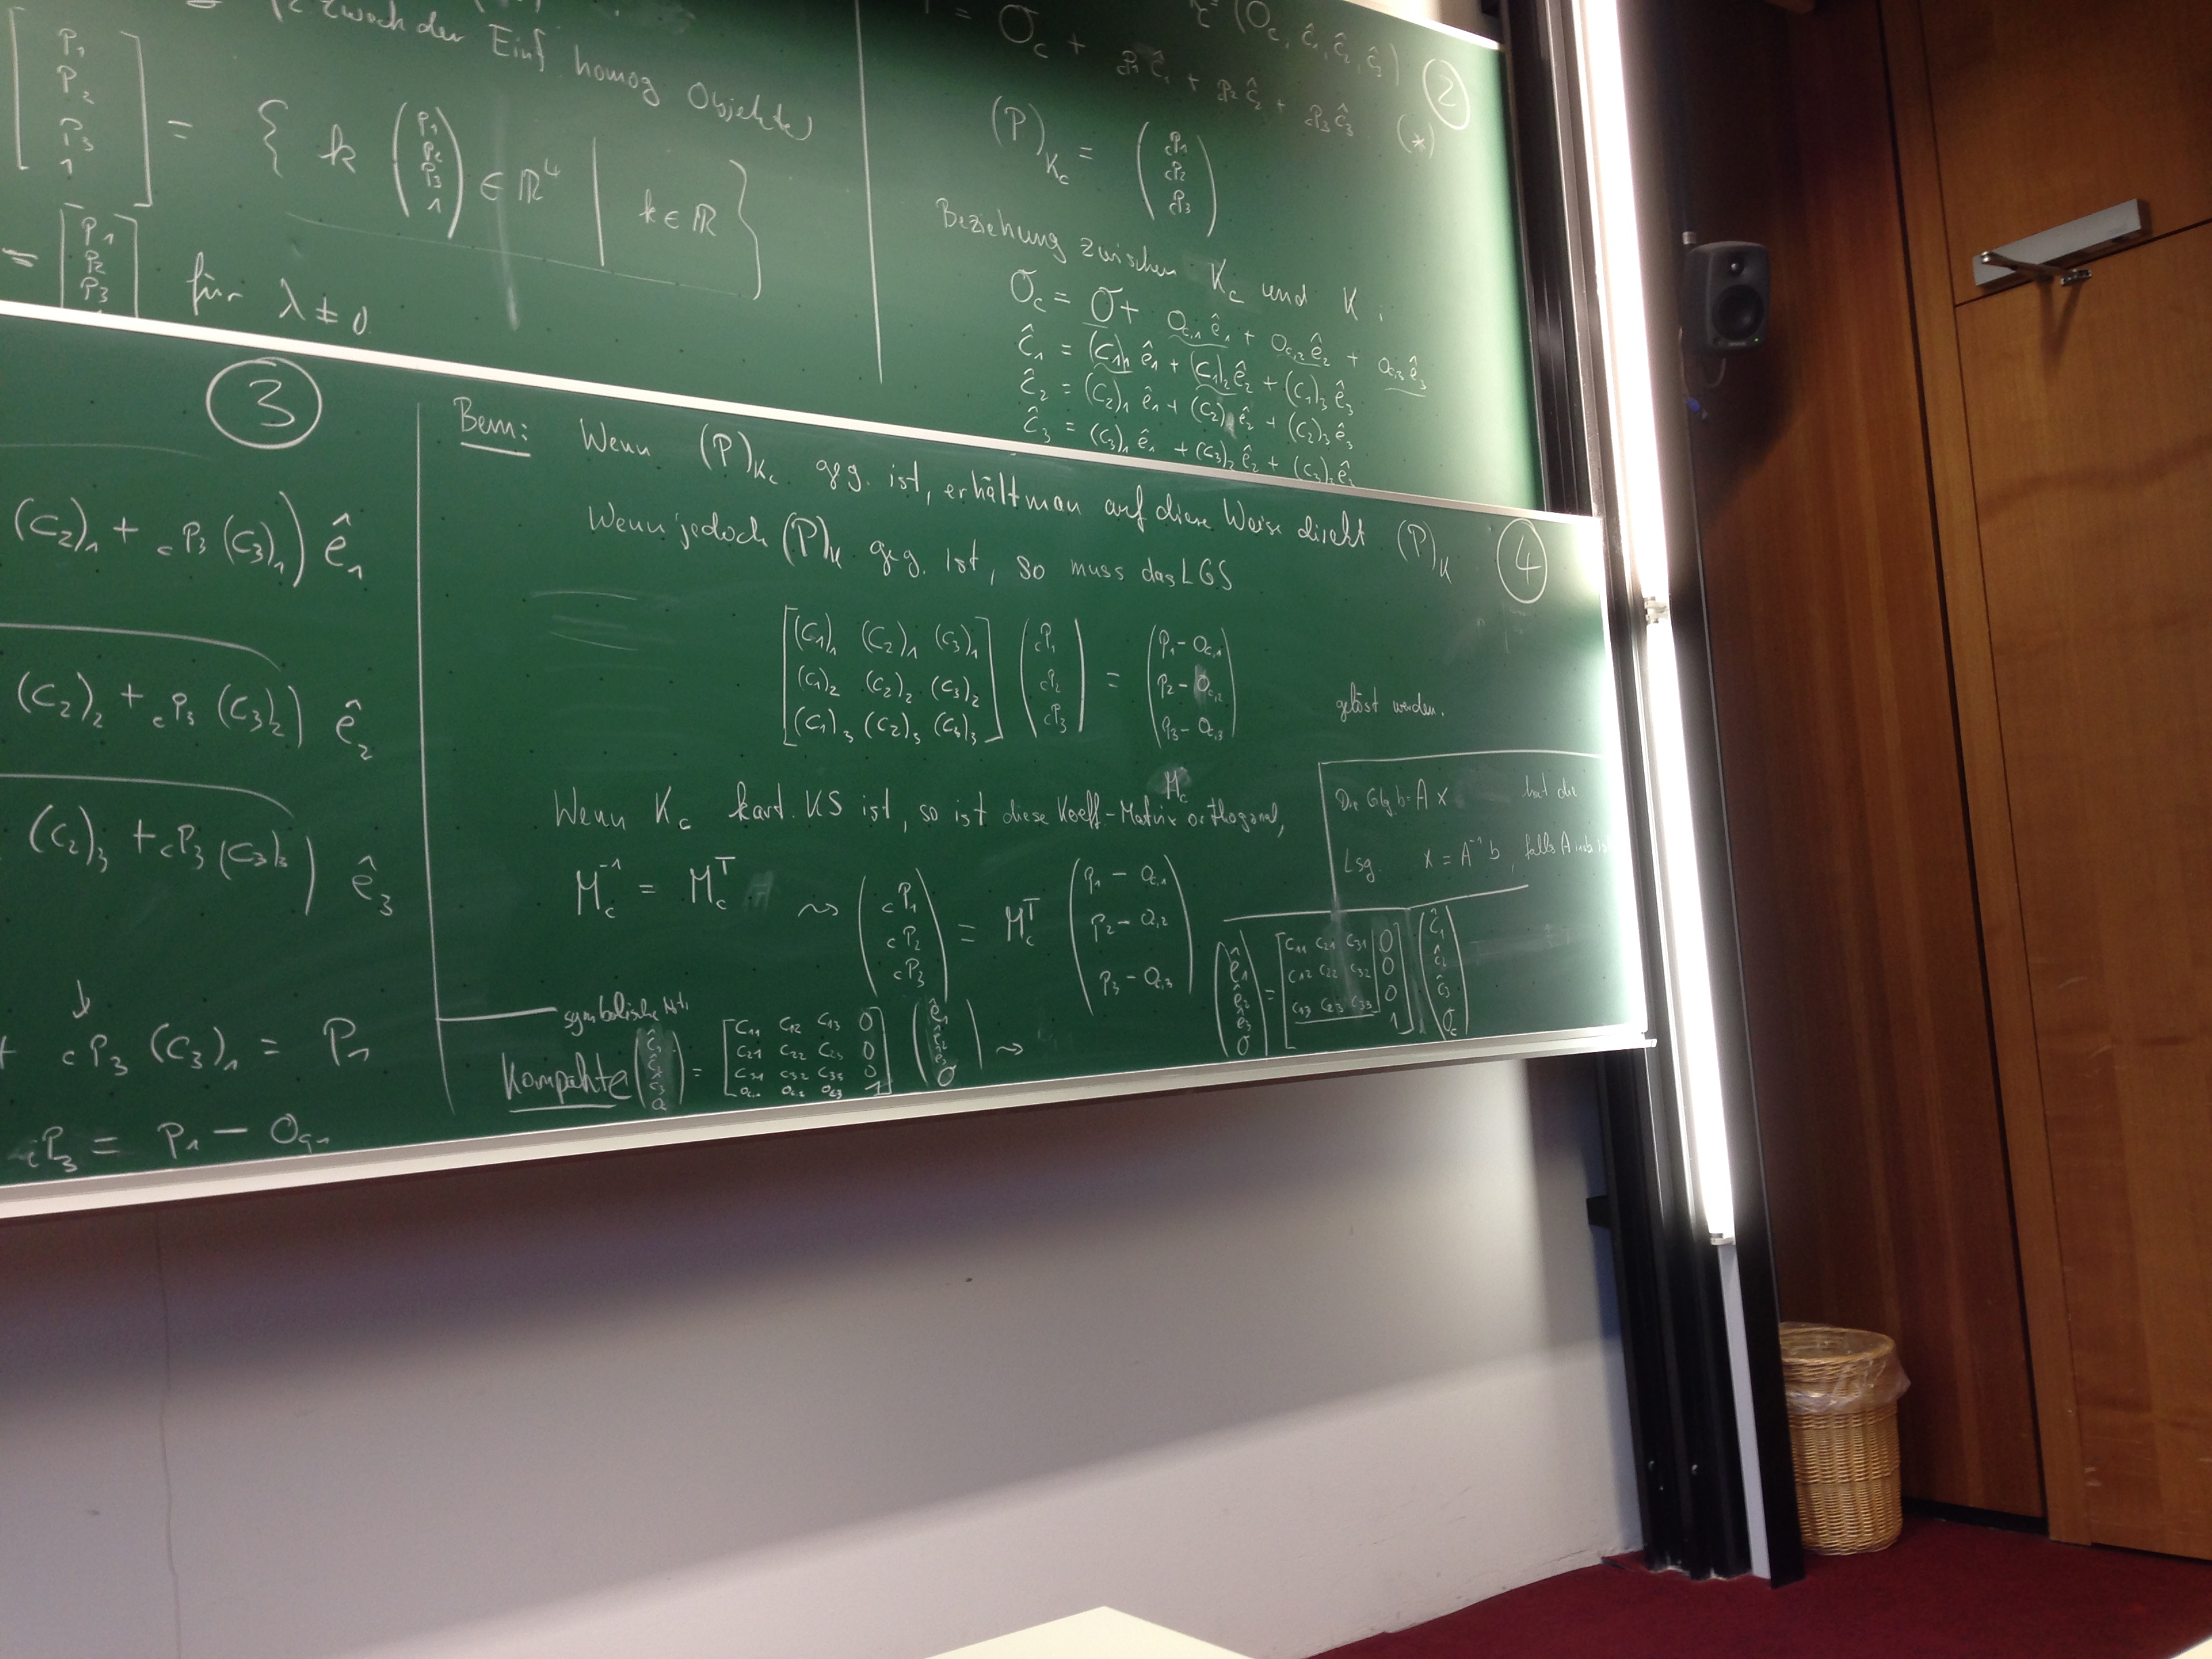 zweck der Einf. homog Objekte)
[P₁ P₂ P₃ 1] = { k (P₁ P₂ P₃ 1) ∈ ℝ⁴ | k ∈ ℝ }
= [P₁ P₂ P₃
für λ ≠ 0
= O_c + cP₁ĉ₁ + cP₂ĉ₂ + cP₃ĉ₃ (*)
(O_c, ĉ₁, ĉ₂, ĉ₃)
②
(P)_{K_c} = (cP₁ cP₂ cP₃)
Beziehung zwischen K_c und K.
O_c = O + O_{c,1}ê₁ + O_{c,2}ê₂ + O_{c,3}ê₃
ĉ₁ = (C₁)₁ ê₁ + (C₁)₂ ê₂ + (C₁)₃ ê₃
ĉ₂ = (C₂)₁ ê₁ + (C₂)₂ ê₂ + (C₂)₃ ê₃
ĉ₃ = (C₃)₁ ê₁ + (C₃)₂ ê₂ + (C₃)₃ ê₃
③
(C₂)₁ + cP₃ (C₃)₁) ê₁
(C₂)₂ + cP₃ (C₃)₂) ê₂
(C₂)₃ + cP₃ (C₃)₃) ê₃
+ cP₃ (C₃)₁ = P₁
cP₃ = P₁ − O_{c,1}
Bem: Wenn (P)_{K_c} geg. ist, erhält man auf diese Weise direkt (P)_K
④
Wenn jedoch (P)_K geg. ist, so muss das LGS
[(C₁)₁ (C₂)₁ (C₃)₁] (cP₁) (P₁ − O_{c,1})
[(C₁)₂ (C₂)₂ (C₃)₂] (cP₂) = (P₂ − O_{c,2})
[(C₁)₃ (C₂)₃ (C₃)₃] (cP₃) (P₃ − O_{c,3})
gelöst werden.
Wenn K_c kart. KS ist, so ist diese Koeff-Matrix M_c orthogonal,
M_c⁻¹ = M_cᵀ ⇝ (cP₁ cP₂ cP₃) = M_cᵀ (P₁ − O_{c,1} P₂ − O_{c,2} P₃ − O_{c,3})
Die Glg b = A x hat die
Lsg. x = A⁻¹ b, falls A
symbolische
Kompakte (ĉ₁ ĉ₂ ĉ₃ O_c) = [C₁₁ C₁₂ C₁₃ 0
C₂₁ C₂₂ C₂₃ 0
C₃₁ C₃₂ C₃₃ 0
O_{c,1} O_{c,2} O_{c,3} 1] (ê₁ ê₂ ê₃ O) ⇝
(ê₁ ê₂ ê₃ O) = [C₁₁ C₂₁ C₃₁ 0
C₁₂ C₂₂ C₃₂ 0
C₁₃ C₂₃ C₃₃ 0
1] (ĉ₁ ĉ₂ ĉ₃ O_c)